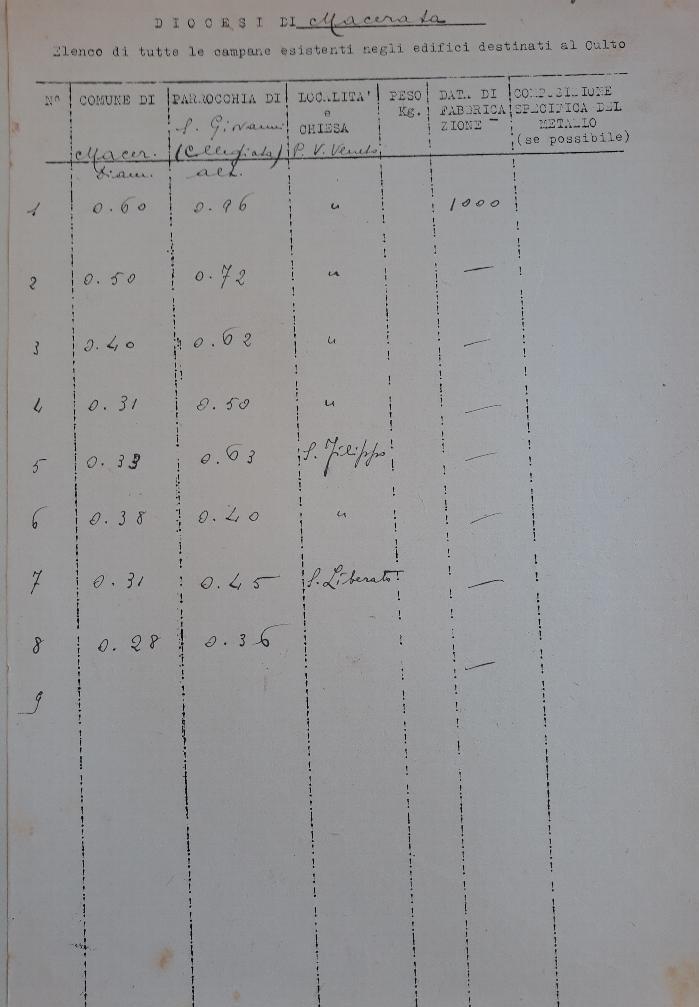 DIOCESI DI Macerata
Elenco di tutte le campane esistenti negli edifici destinati al Culto
N° COMUNE DI PARROCCHIA DI LOCALITA' PESO DATA DI COMPOSIZIONE
S. Giovanni e Kg. FABBRICA SPECIFICA DEL
CHIESA ZIONE METALLO
Macer. (Collegiata) P. V. Veneto (se possibile)
Diam. alt.
1 0.60 0.96 " 1000
2 0.50 0.72 " —
3 0.40 0.62 " —
4 0.31 0.50 " —
5 0.33 0.63 S. Filippo —
6 0.38 0.40 " —
7 0.31 0.45 S. Liberato —
8 0.28 0.36 —
9